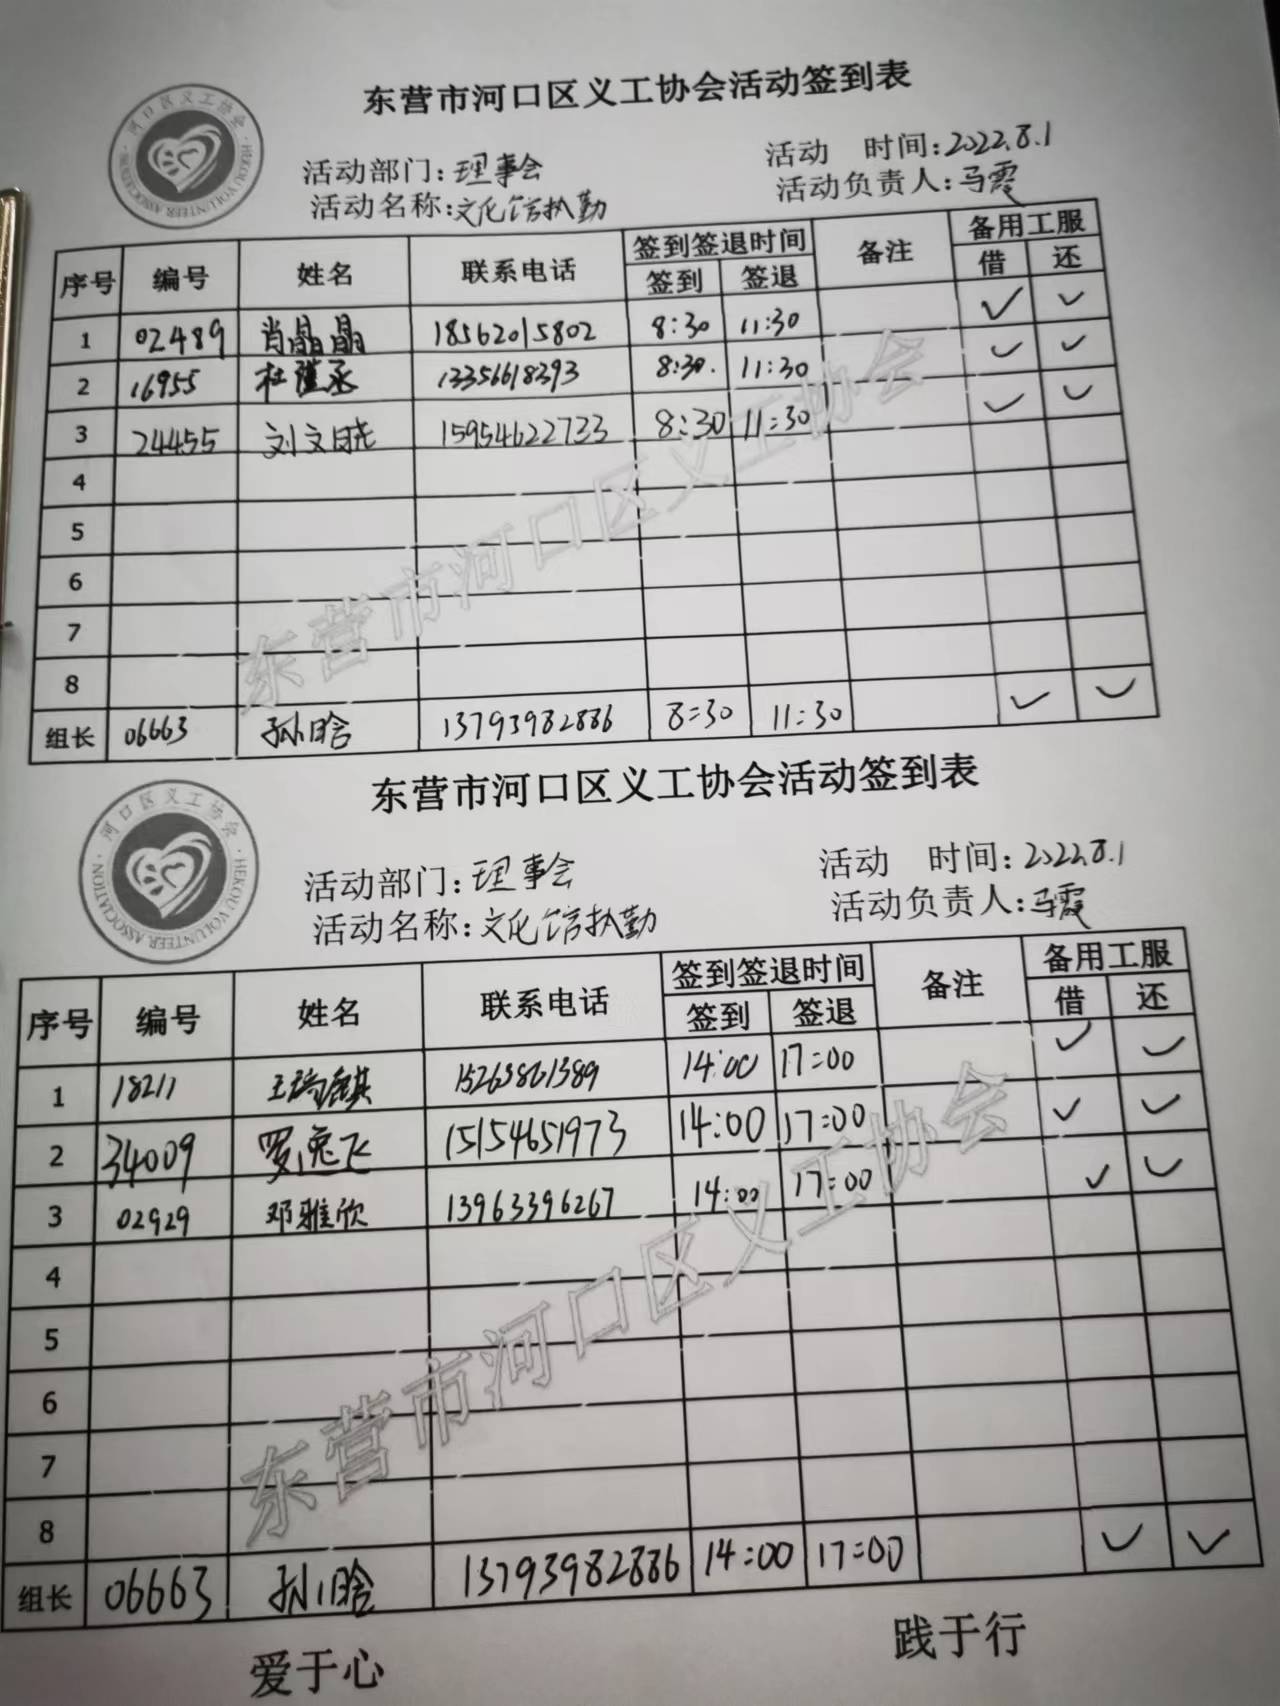 东营市河口区义工协会活动签到表
河口区义工协会
HEKOU VOLUNTEER ASSOCIATION
活动部门:理事会 活动 时间:2022.8.1
活动名称:文化馆执勤 活动负责人:马霞
序号 编号 姓名 联系电话 签到签退时间 备注 备用工服
签到 签退 借 还
1 02489 肖晶晶 18562015802 8:30 11:30 ✓ ✓
2 16955 杜 丞 13356618393 8:30. 11:30 ✓ ✓
3 24455 刘文晓 15954622733 8:30 11:30 ✓ ✓
4
5
6
7
8
组长 06663 孙晗 13793982886 8:30 11:30 ✓ ✓
东营市河口区义工协会
东营市河口区义工协会活动签到表
河口区义工协会
HEKOU VOLUNTEER ASSOCIATION
活动部门:理事会 活动 时间:2022.8.1
活动名称:文化馆执勤 活动负责人:马霞
序号 编号 姓名 联系电话 签到签退时间 备注 备用工服
签到 签退 借 还
1 18211 王瑞麒 15263861389 14:00 17:00 ✓ ✓
2 34009 罗逸飞 15154651973 14:00 17:00 ✓ ✓
3 02929 邓雅欣 13963396267 14:00 17:00 ✓ ✓
4
5
6
7
8
组长 06663 孙晗 13793982886 14:00 17:00 ✓ ✓
东营市河口区义工协会
爱于心 践于行